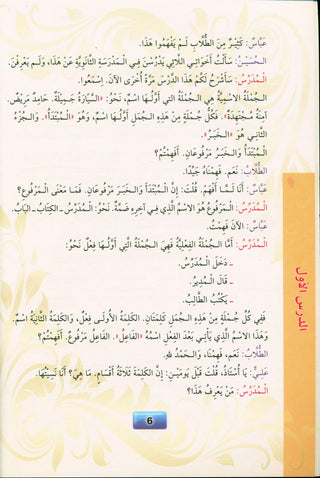 عَبَّاسٌ: كَثِيْرٌ مِنَ الطُّلَّابِ لَمْ يَفْهَمُوا هٰذَا.
الحُسَيْنُ: سَأَلْتُ أَخَوَاتِي اللَّاتِي يَدْرُسْنَ فِي الْمَدْرَسَةِ الثَّانَوِيَّةِ عَنْ هٰذَا، وَلَمْ يَعْرِفْنَ.
الْمُدَرِّسُ: سَأَشْرَحُ لَكُمْ هٰذَا الدَّرْسَ مَرَّةً أُخْرَى الآنَ. اِسْمَعُوا.
الْجُمْلَةُ الاسْمِيَّةُ هِيَ الجُمْلَةُ الَّتي أَوَّلُـهَا اسْمٌ، نَحْوُ: «السَّيَّارَةُ جَمِيلَةٌ. حَامِدٌ مَرِيضٌ.
آمِنَةُ مُجْتَهِدَةٌ». فَكُلُّ جُمْلَةٍ مِنْ هٰذِهِ الْجُمَلِ أَوَّلُـهَا اسْمٌ، وَهُوَ «الْمُبْتَدَأُ». وَالْجُزْءُ
الثَّانِي هُوَ «الخَبَرُ».
الْمُبْتَدَأُ وَالْخَبَرُ مَرْفُوعَانِ. أَفَهِمْتُمْ؟
الطُّلَّابُ: نَعَمْ، فَهِمْنَاهُ جَيِّدًا.
عَبَّاسٌ: أَنَا لَـمَّا أَفْهَمْ. قُلْتَ: إِنَّ الْمُبْتَدَأَ وَالْـخَبَرَ مَرْفُوعَانِ. فَمَا مَعْنَى الْمَرْفُوعِ؟
الْمُدَرِّسُ: الْمَرْفُوعُ هُوَ الاسْمُ الَّذِي فِي آخِرِهِ ضَمَّةٌ. نَحْوُ: الْمُدَرِّسُ ـ الْكِتَابُ ـ الْبَابُ.
عَبَّاسٌ: الآنَ فَهِمْتُ.
الْمُدَرِّسُ: أَمَّا الْجُمْلَةُ الْفِعْلِيَّةُ فَهِيَ الْجُمْلَةُ الَّتِي أَوَّلُـهَا فِعْلٌ نَحْوُ:
ـ دَخَلَ الْمُدَرِّسُ.
ـ قَالَ الْمُدِيرُ.
ـ يَكْتُبُ الطَّالِبُ.
فَفِي كُلِّ جُمْلَةٍ مِنْ هٰذِهِ الْجُمَلِ كَلِمَتَانِ. الْكَلِمَةُ الأُولَى فِعْلٌ، وَالْكَلِمَةُ الثَّانِيَةُ اسْمٌ.
وَهٰذَا الاسْمُ الَّذِي يَأْتِي بَعْدَ الْفِعْلِ اسْمُهُ «الفَاعِلُ». الفَاعِلُ مَرْفُوعٌ. أَفَهِمْتُمْ؟
الطُّلَّابُ: نَعَمْ، فَهِمْنَا، وَالْـحَمْدُ لِلّٰهِ.
عَلِيٌّ: يَا أُسْتَاذُ، قُلْتَ قَبْلَ يَوْمَيْنِ: إِنَّ الكَلِمَةَ ثَلَاثَةُ أَقْسَامٍ. مَا هِيَ؟ أَنَا نَسِيْتُهَا.
الْمُدَرِّسُ: مَنْ يَعْرِفُ هٰذَا؟
الدرس الأول
6